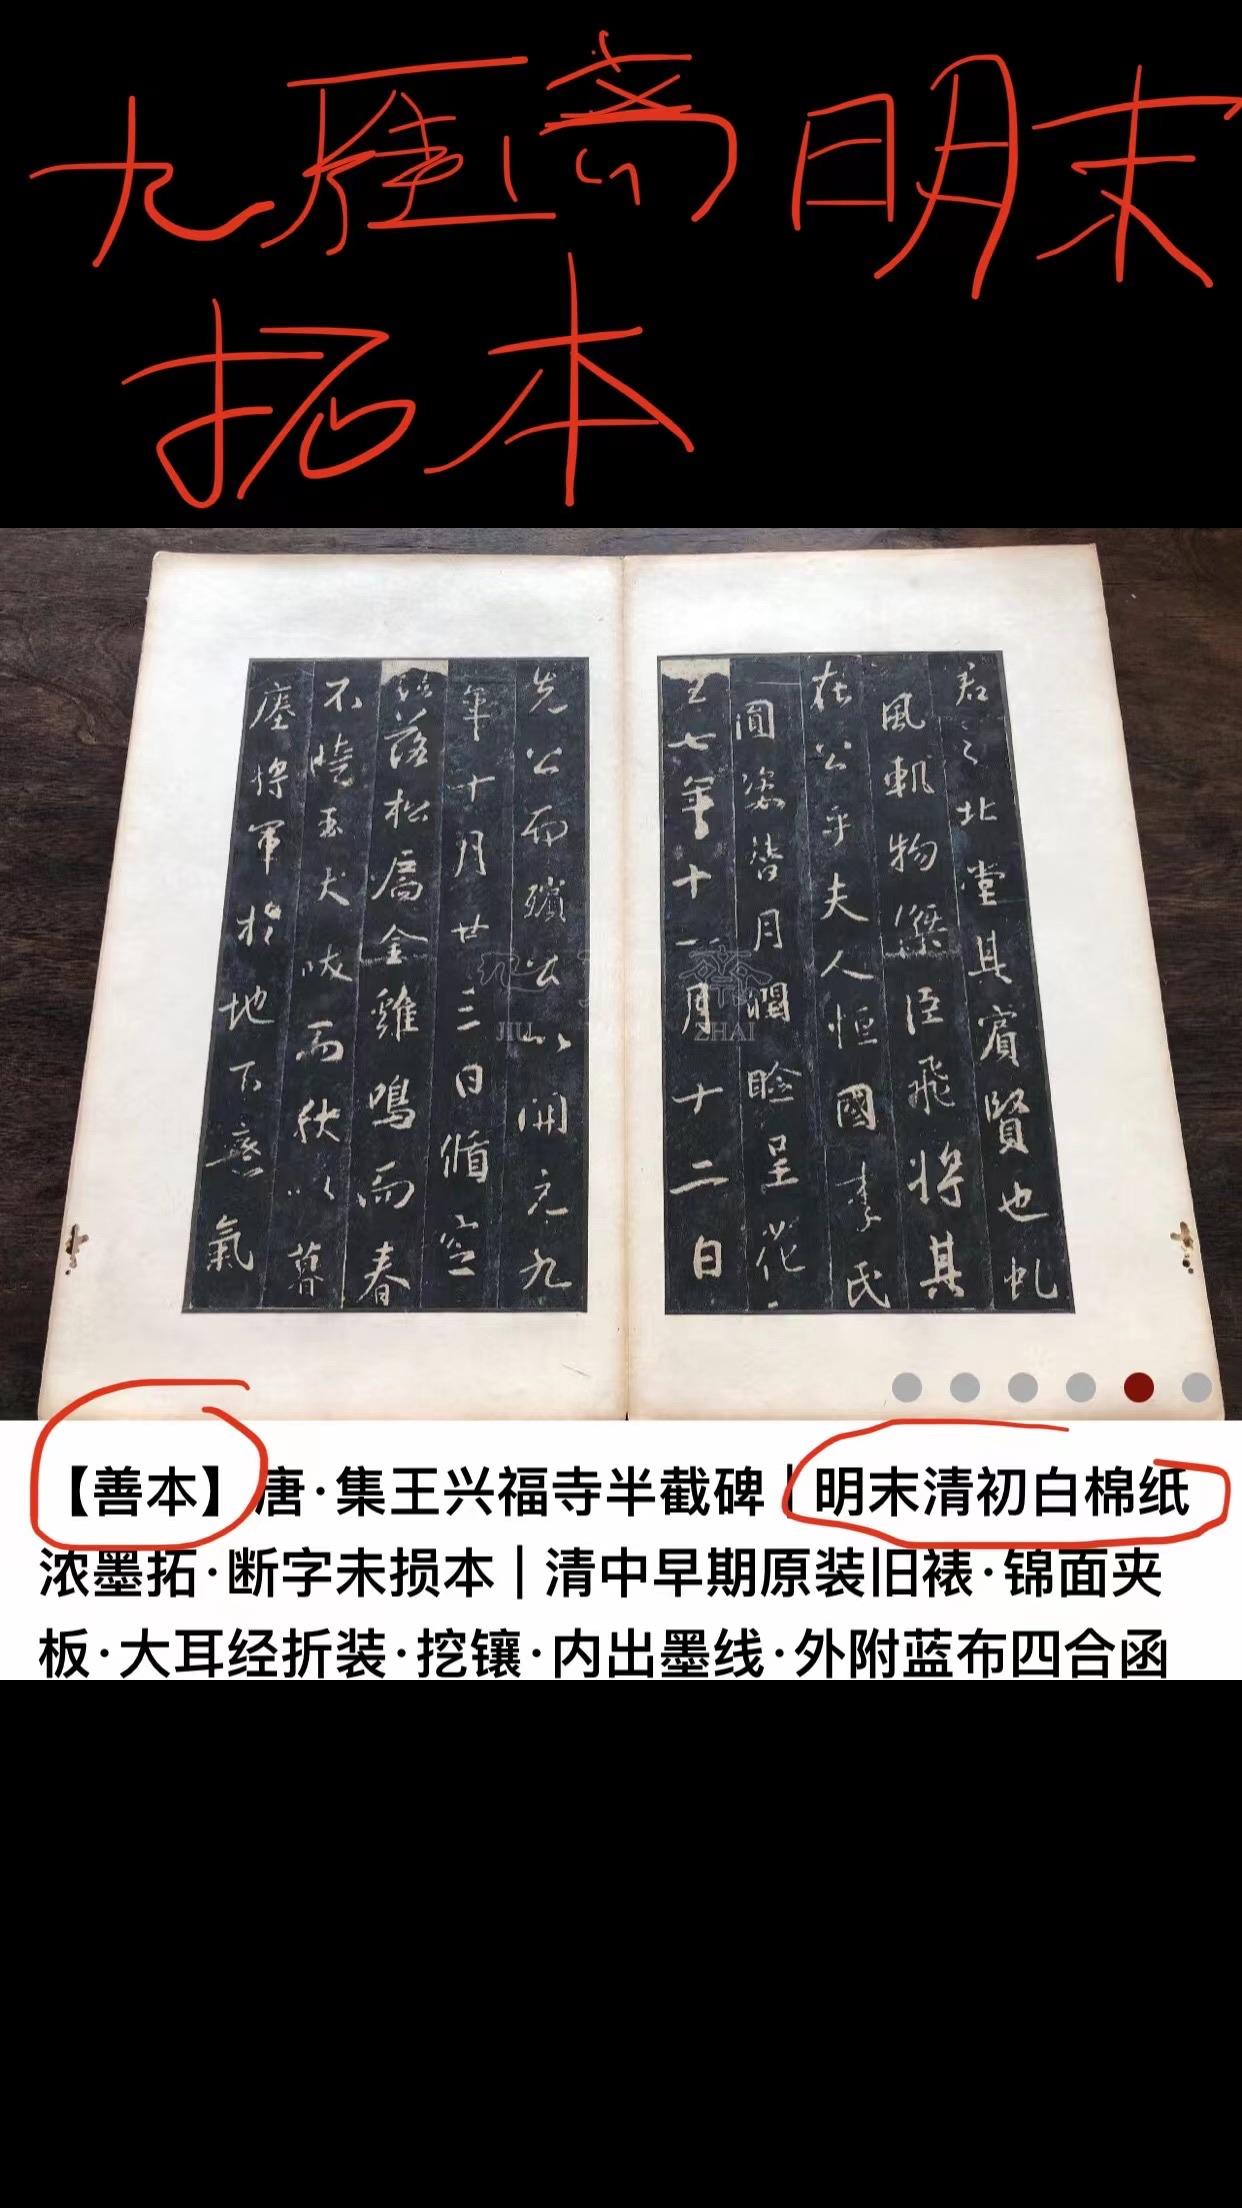 九雁斋明末
拓本
君之北堂具賓賢也虬
風軌物傑臣飛將其
在公乎夫人恒國李氏
圓姿替月潤臉呈花
五七年十一月十二日
先公而殯公以開元九
年十月廿三日循窆
落松扄金雞鳴而春
不曉玉犬吠而秋以暮
塵將軍於地下慕氣
JIU YAN ZHAI
【善本】唐·集王兴福寺半截碑｜明末清初白棉纸
浓墨拓·断字未损本｜清中早期原装旧裱·锦面夹
板·大耳经折装·挖镶·内出墨线·外附蓝布四合函